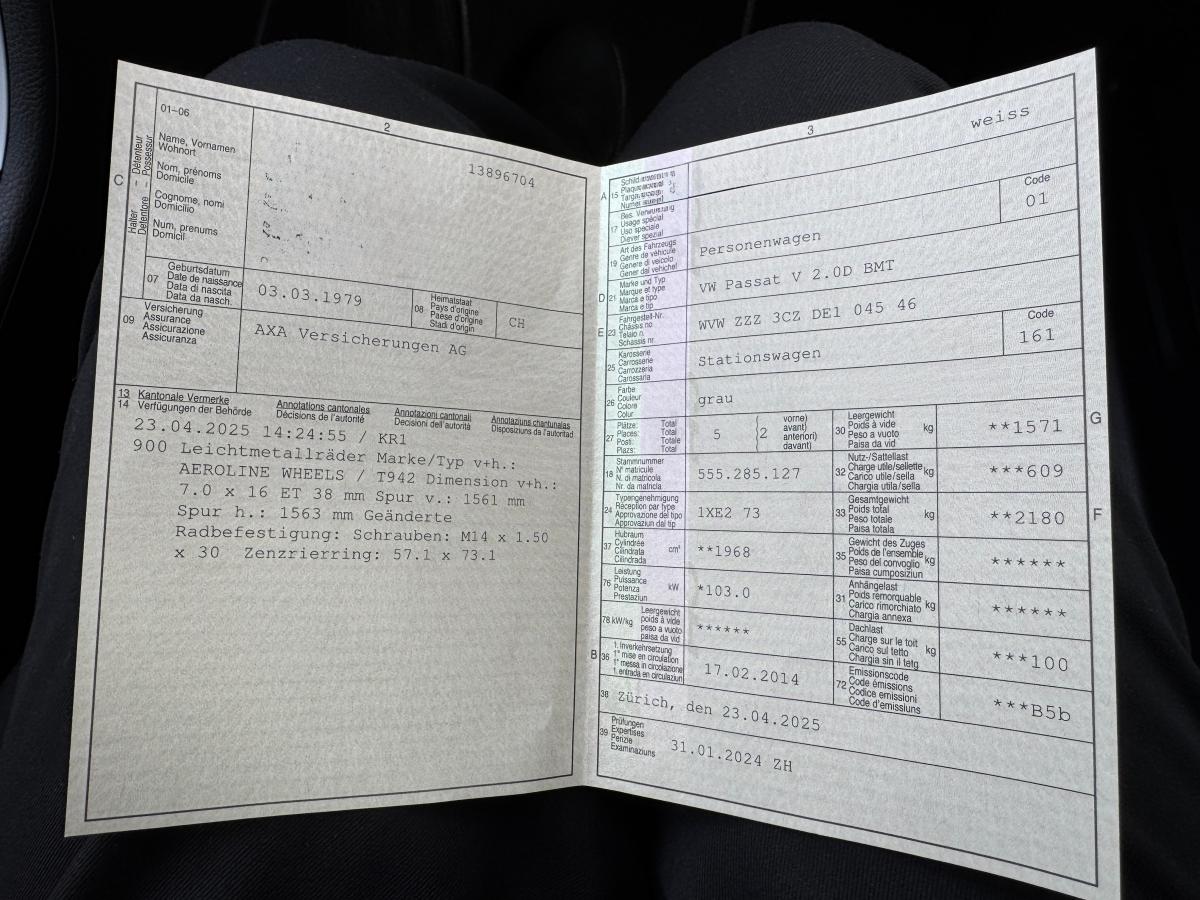 2
C
Halter – Détenteur
Detentore – Possessur
01–06
13896704
Name, Vornamen
Wohnort
Nom, prénoms
Domicile
Cognome, nomi
Domicilio
Num, prenums
Domicil
07
Geburtsdatum
Date de naissance
Data di nascita
Data da nasch.
03.03.1979
08
Heimatstaat
Pays d'origine
Paese d'origine
Stadi d'origin
CH
09
Versicherung
Assurance
Assicurazione
Assicuranza
AXA Versicherungen AG
13 Kantonale Vermerke Annotations cantonales Annotazioni cantonali Annotaziuns chantunalas
14 Verfügungen der Behörde Décisions de l'autorité Decisioni dell'autorità Disposiziuns da l'autoritad
23.04.2025 14:24:55 / KR1
900 Leichtmetallräder Marke/Typ v+h.:
AEROLINE WHEELS / T942 Dimension v+h.:
7.0 x 16 ET 38 mm Spur v.: 1561 mm
Spur h.: 1563 mm Geänderte
Radbefestigung: Schrauben: M14 x 1.50
x 30 Zenzrierring: 57.1 x 73.1
3
weiss
A
15
Schild
17
Usage spécial
Uso speciale
Diever spezial
Code
01
19
Art des Fahrzeugs
Genre de véhicule
Genere di veicolo
Gener dal vehichel
Personenwagen
D
21
Marke und Typ
Marque et type
Marca e tipo
Marca e tip
VW Passat V 2.0D BMT
E
23
Fahrgestell-Nr.
Châssis no
Telaio n.
Schassis nr.
WVW ZZZ 3CZ DE1 045 46
25
Karosserie
Carrosserie
Carrozzeria
Carossaria
Stationswagen
Code
161
26
Farbe
Couleur
Colore
Colur
grau
27
Plätze: Total
Places: Total
Posti: Totale
Plazs: Total
5
(2
vorne)
avant)
anteriori)
davant)
G
30
Leergewicht
Poids à vide
Peso a vuoto
Paisa da vid
kg
**1571
18
Stammnummer
N° matricule
N. di matricola
Nr. da matricla
555.285.127
32
Nutz-/Sattellast
Charge utile/sellette
Carico utile/sella
Chargia utila/sella
kg
***609
24
Typengenehmigung
Réception par type
Approvazione del tipo
Approvaziun dal tip
1XE2 73
F
33
Gesamtgewicht
Poids total
Peso totale
Paisa totala
kg
**2180
37
Hubraum
Cylindrée
Cilindrata
Cilindrada
cm³
**1968
35
Gewicht des Zuges
Poids de l'ensemble
Peso del convoglio
Paisa cumposiziun
kg
******
76
Leistung
Puissance
Potenza
Prestaziun
kW
*103.0
31
Anhängelast
Poids remorquable
Carico rimorchiato
Chargia annexa
kg
******
78 kW/kg
Leergewicht
poids à vide
peso a vuoto
paisa da vid
******
55
Dachlast
Charge sur le toit
Carico sul tetto
Chargia sin il tetg
kg
***100
B
36
1. Inverkehrsetzung
1re mise en circulation
1a messa in circolazione
1. entrada en circulaziun
17.02.2014
72
Emissionscode
Code émissions
Codice emissioni
Code d'emissiuns
***B5b
38
Zürich, den 23.04.2025
39
Prüfungen
Expertises
Perizie
Examinaziuns
31.01.2024 ZH